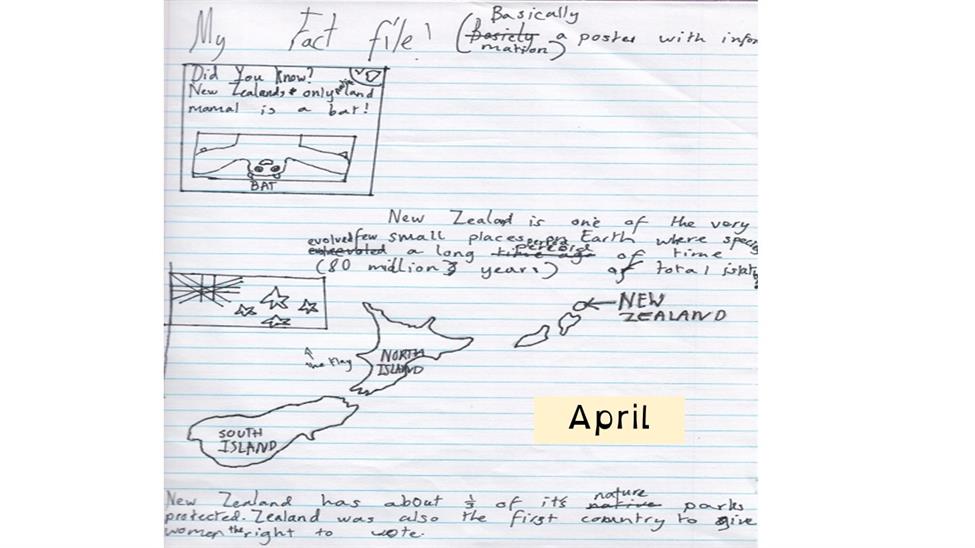 My Fact file! (Basically
Basicly a poster with infor
mation)
Did You Know?
New Zealands only native land
mamal is a bat!
BAT
New Zealand is one of the very
few small places on Earth where species
evolved a long period of time
(80 million years) of total isolat
NEW
ZEALAND
the flag
NORTH
ISLAND
April
SOUTH
ISLAND
New Zealand has about ⅓ of it's native nature parks
protected. Zealand was also the first country to give
women the right to vote.